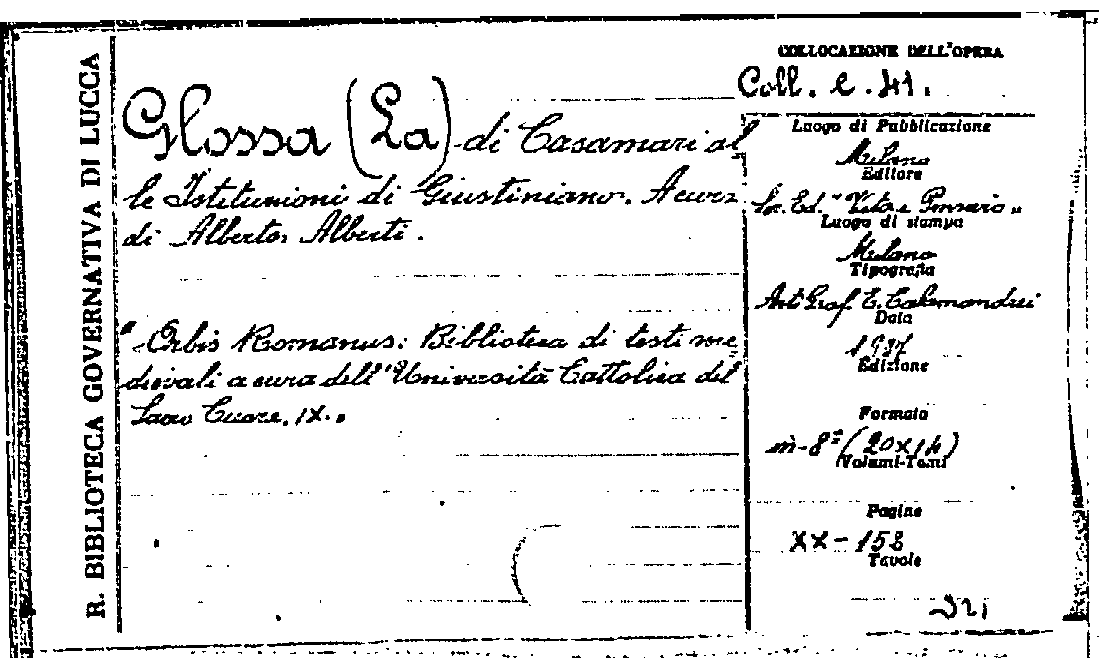 R. BIBLIOTECA GOVERNATIVA DI LUCCA
Glossa (La) di Casamari al
le Istituzioni di Giustiniano. A cura
di Alberto Alberti.
"Orbis Romanus: Biblioteca di testi me
dievali a cura dell'Università Cattolica del
Sacro Cuore. IX."
COLLOCAZIONE DELL'OPERA
Coll. C. 41.
Luogo di Pubblicazione
Milano
Editore
Soc. Ed. "Vita e Pensiero"
Luogo di stampa
Milano
Tipografia
Art. Graf. E. Calamandrei
Data
1937
Edizione
Formato
in-8° (20x14)
Volumi-Tomi
Pagine
XX-158
Tavole